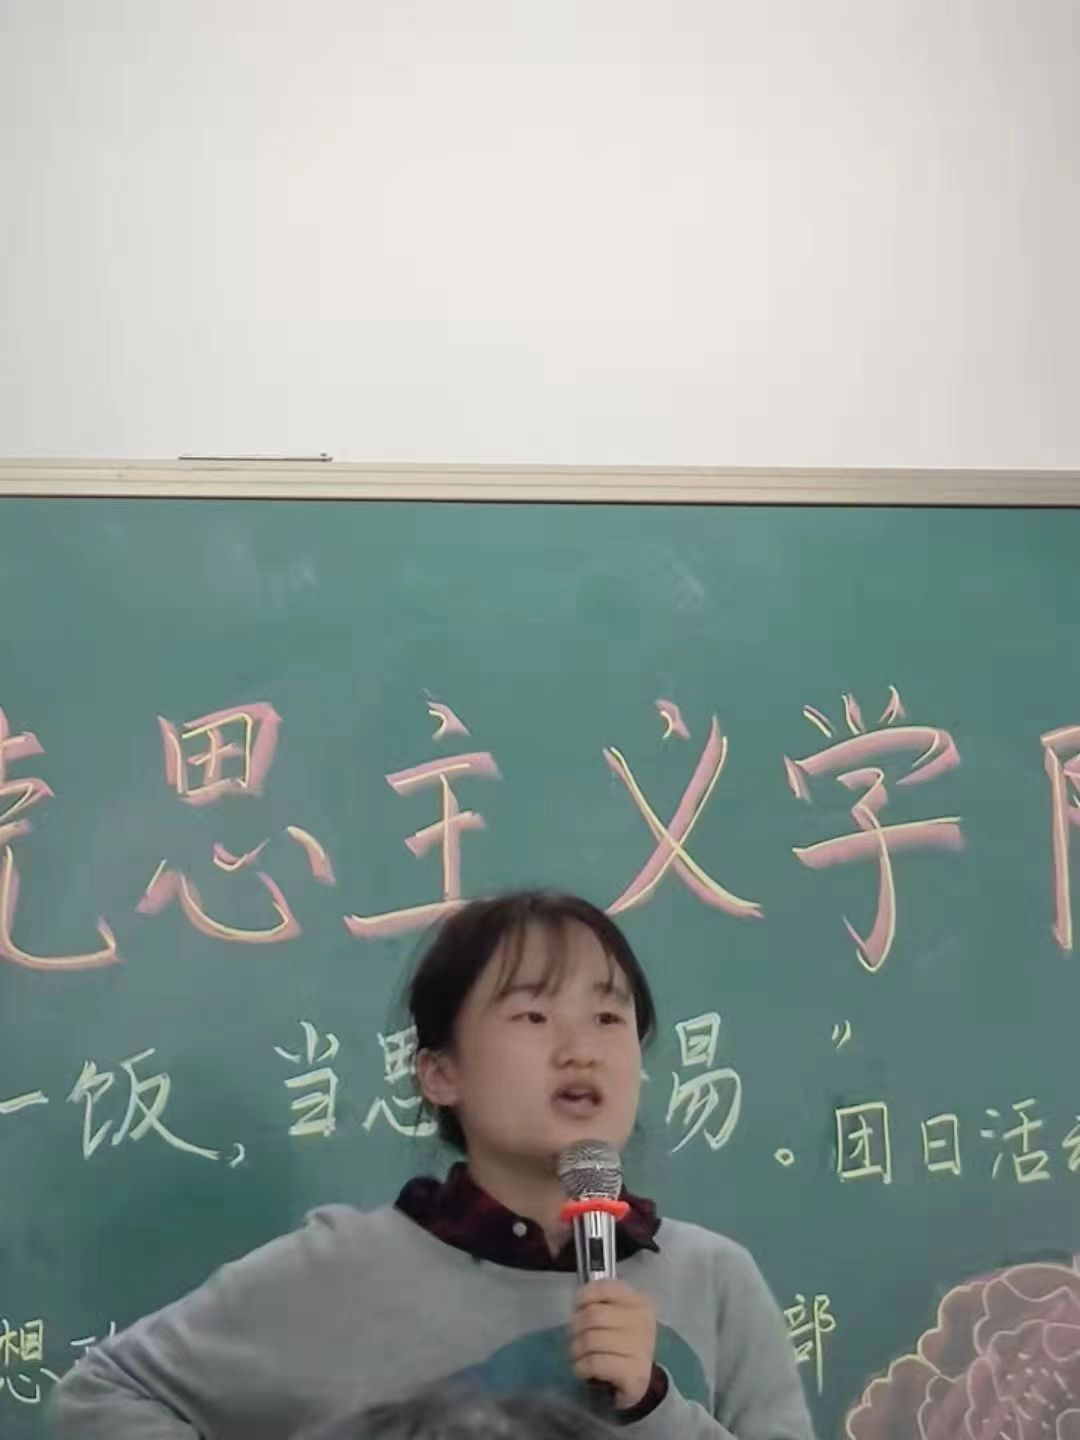 克思主义学
一饭，当思 易。”
团日活
想
部